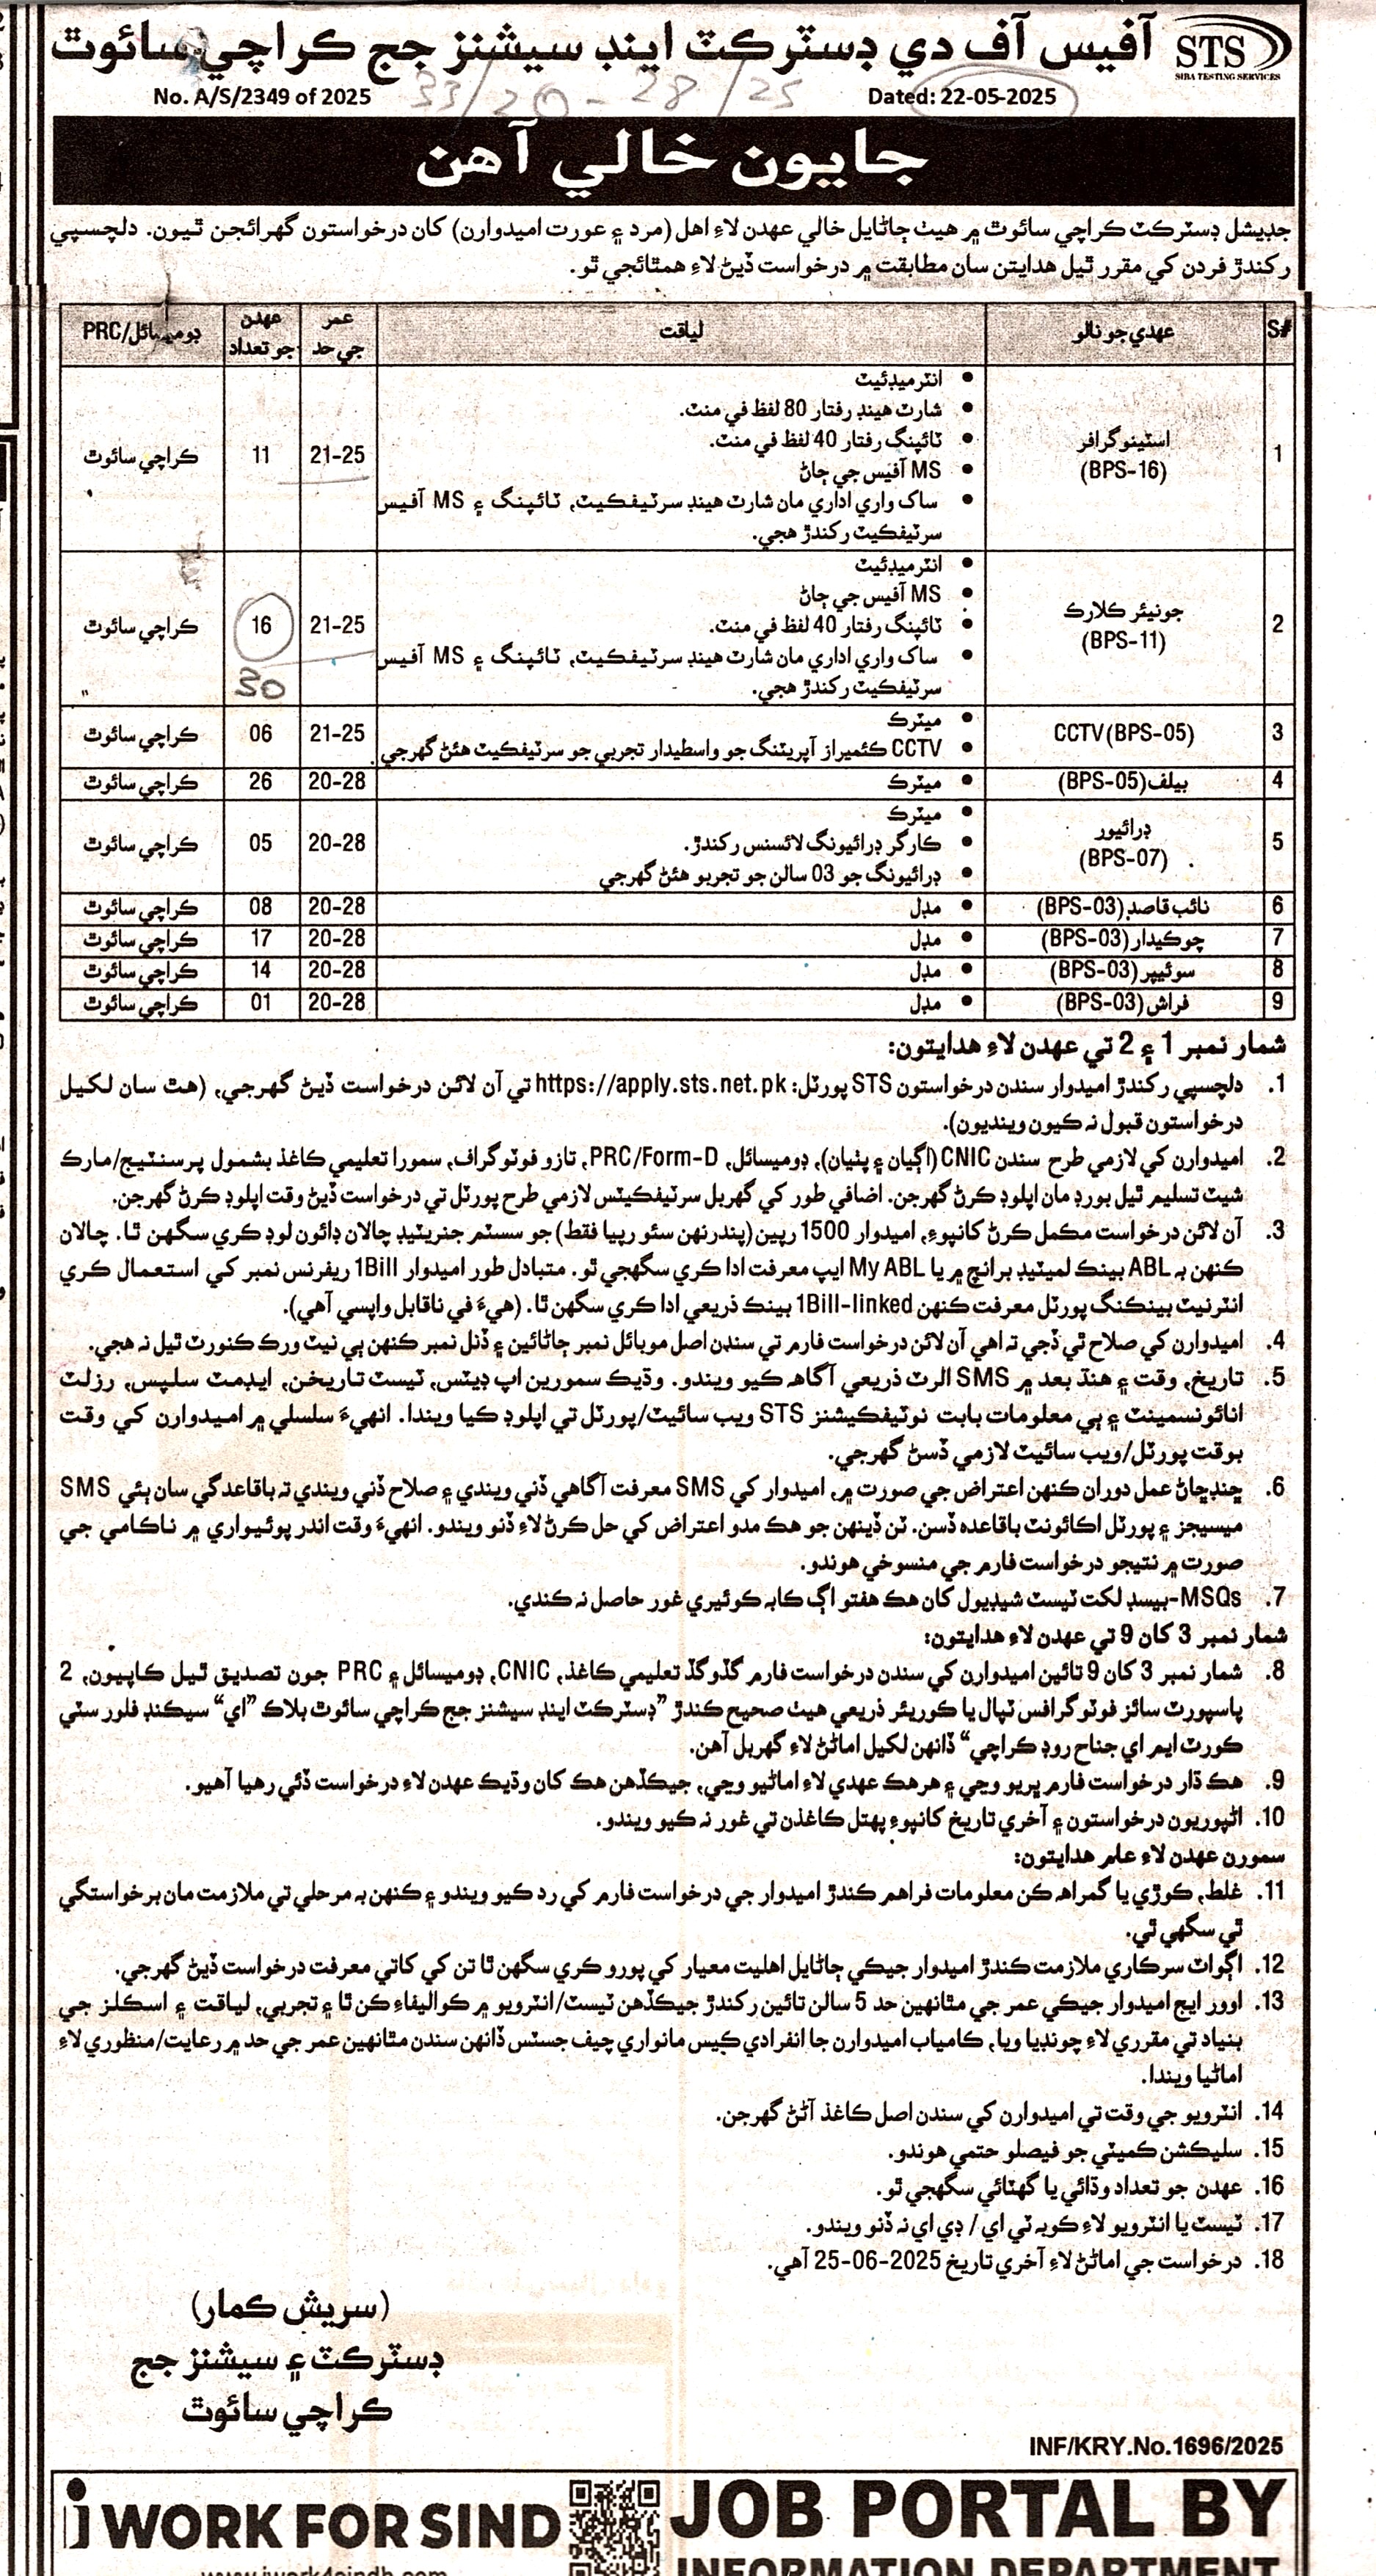 آفيس آف دي ڊسٽرڪٽ اينڊ سيشنز جج ڪراچي سائوٿ
STS
SIBA TESTING SERVICES
No. A/S/2349 of 2025
33/20-28/25
Dated: 22-05-2025
جايون خالي آهن
جڊيشل ڊسٽرڪٽ ڪراچي سائوٿ ۾ هيٺ ڄاڻايل خالي عهدن لاءِ اهل (مرد ۽ عورت اميدوارن) کان درخواستون گهرائجن ٿيون. دلچسپي
رکندڙ فردن کي مقرر ٿيل هدايتن سان مطابقت ۾ درخواست ڏيڻ لاءِ همٿائجي ٿو.
S# عهدي جو نالو لياقت عمر جي حد عهدن جو تعداد ڊوميسائل/PRC
1 اسٽينوگرافر (BPS-16) 21-25 11 ڪراچي سائوٿ
• انٽرميڊئيٽ
• شارٽ هينڊ رفتار 80 لفظ في منٽ.
• ٽائپنگ رفتار 40 لفظ في منٽ.
• MS آفيس جي ڄاڻ
• ساک واري اداري مان شارٽ هينڊ سرٽيفڪيٽ، ٽائپنگ ۽ MS آفيس
سرٽيفڪيٽ رکندڙ هجي.
2 جونيئر ڪلارڪ (BPS-11) 21-25 16 ڪراچي سائوٿ
30
• انٽرميڊئيٽ
• MS آفيس جي ڄاڻ
• ٽائپنگ رفتار 40 لفظ في منٽ.
• ساک واري اداري مان شارٽ هينڊ سرٽيفڪيٽ، ٽائپنگ ۽ MS آفيس
سرٽيفڪيٽ رکندڙ هجي.
3 CCTV (BPS-05) 21-25 06 ڪراچي سائوٿ
• ميٽرڪ
• CCTV ڪئميراز آپريٽنگ جو واسطيدار تجربي جو سرٽيفڪيٽ هئڻ گهرجي.
4 بيلف (BPS-05) • ميٽرڪ 20-28 26 ڪراچي سائوٿ
5 ڊرائيور (BPS-07) 20-28 05 ڪراچي سائوٿ
• ميٽرڪ
• ڪارگر ڊرائيونگ لائسنس رکندڙ.
• ڊرائيونگ جو 03 سالن جو تجربو هئڻ گهرجي
6 نائب قاصد (BPS-03) • مڊل 20-28 08 ڪراچي سائوٿ
7 چوڪيدار (BPS-03) • مڊل 20-28 17 ڪراچي سائوٿ
8 سوئيپر (BPS-03) • مڊل 20-28 14 ڪراچي سائوٿ
9 فراش (BPS-03) • مڊل 20-28 01 ڪراچي سائوٿ
شمار نمبر 1 ۽ 2 تي عهدن لاءِ هدايتون:
1. دلچسپي رکندڙ اميدوار سندن درخواستون STS پورٽل: https://apply.sts.net.pk تي آن لائن درخواست ڏيڻ گهرجي، (هٿ سان لکيل
درخواستون قبول نه ڪيون وينديون).
2. اميدوارن کي لازمي طرح سندن CNIC (اڳيان ۽ پٺيان)، ڊوميسائل، PRC/Form-D، تازو فوٽوگراف، سمورا تعليمي ڪاغذ بشمول پرسنٽيج/مارڪ
شيٽ تسليم ٿيل بورڊ مان اپلوڊ ڪرڻ گهرجن. اضافي طور کي گهربل سرٽيفڪيٽس لازمي طرح پورٽل تي درخواست ڏيڻ وقت اپلوڊ ڪرڻ گهرجن.
3. آن لائن درخواست مڪمل ڪرڻ کانپوءِ، اميدوار 1500 رپين (پندرنهن سئو رپيا فقط) جو سسٽم جنريٽيڊ چالان ڊائون لوڊ ڪري سگهن ٿا. چالان
ڪنهن به ABL بينڪ لميٽيڊ برانچ ۾ يا My ABL ايپ معرفت ادا ڪري سگهجي ٿو. متبادل طور اميدوار 1Bill ريفرنس نمبر کي استعمال ڪري
انٽرنيٽ بينڪنگ پورٽل معرفت ڪنهن 1Bill-linked بينڪ ذريعي ادا ڪري سگهن ٿا. (هيءَ في ناقابل واپسي آهي).
4. اميدوارن کي صلاح ٿي ڏجي ته اهي آن لائن درخواست فارم تي سندن اصل موبائل نمبر ڄاڻائين ۽ ڏنل نمبر ڪنهن ٻي نيٽ ورڪ ڪنورٽ ٿيل نه هجي.
5. تاريخ، وقت ۽ هنڌ بعد ۾ SMS الرٽ ذريعي آگاهه ڪيو ويندو. وڌيڪ سمورين اپ ڊيٽس، ٽيسٽ تاريخن، ايڊمٽ سلپس، رزلٽ
انائونسمينٽ ۽ ٻي معلومات بابت نوٽيفڪيشنز STS ويب سائيٽ/پورٽل تي اپلوڊ ڪيا ويندا. انهيءَ سلسلي ۾ اميدوارن کي وقت
بوقت پورٽل/ويب سائيٽ لازمي ڏسڻ گهرجي.
6. ڇنڊڇاڻ عمل دوران ڪنهن اعتراض جي صورت ۾، اميدوار کي SMS معرفت آگاهي ڏني ويندي ۽ صلاح ڏني ويندي ته باقاعدگي سان ٻئي SMS
ميسيجز ۽ پورٽل اڪائونٽ باقاعده ڏسن. ٽن ڏينهن جو هڪ مدو اعتراض کي حل ڪرڻ لاءِ ڏنو ويندو. انهيءَ وقت اندر پوئيواري ۾ ناڪامي جي
صورت ۾ نتيجو درخواست فارم جي منسوخي هوندو.
7. MSQs-بيسڊ لکت ٽيسٽ شيڊيول کان هڪ هفتو اڳ ڪابه ڪوئيري غور حاصل نه ڪندي.
شمار نمبر 3 کان 9 تي عهدن لاءِ هدايتون:
8. شمار نمبر 3 کان 9 تائين اميدوارن کي سندن درخواست فارم گڏوگڏ تعليمي ڪاغذ، CNIC، ڊوميسائل ۽ PRC جون تصديق ٿيل ڪاپيون، 2
پاسپورٽ سائز فوٽوگرافس ٽپال يا ڪوريئر ذريعي هيٺ صحيح ڪندڙ ”ڊسٽرڪٽ اينڊ سيشنز جج ڪراچي سائوٿ بلاڪ ”اي“ سيڪنڊ فلور سٽي
ڪورٽ ايم اي جناح روڊ ڪراچي“ ڏانهن لکيل اماڻڻ لاءِ گهربل آهن.
9. هڪ ڌار درخواست فارم ڀريو وڃي ۽ هر هڪ عهدي لاءِ اماڻيو وڃي، جيڪڏهن هڪ کان وڌيڪ عهدن لاءِ درخواست ڏئي رهيا آهيو.
10. اڻپوريون درخواستون ۽ آخري تاريخ کانپوءِ پهتل ڪاغذن تي غور نه ڪيو ويندو.
سمورن عهدن لاءِ عام هدايتون:
11. غلط، ڪوڙي يا گمراهه ڪن معلومات فراهم ڪندڙ اميدوار جي درخواست فارم کي رد ڪيو ويندو ۽ ڪنهن به مرحلي تي ملازمت مان برخواستگي
ٿي سگهي ٿي.
12. اڳواٽ سرڪاري ملازمت ڪندڙ اميدوار جيڪي ڄاڻايل اهليت معيار کي پورو ڪري سگهن ٿا تن کي کاتي معرفت درخواست ڏيڻ گهرجي.
13. اوور ايج اميدوار جيڪي عمر جي مٿانهين حد 5 سالن تائين رکندڙ جيڪڏهن ٽيسٽ/انٽرويو ۾ ڪواليفاءِ ڪن ٿا ۽ تجربي، لياقت ۽ اسڪلز جي
بنياد تي مقرري لاءِ چونڊيا ويا، ڪامياب اميدوارن جا انفرادي ڪيس مانواري چيف جسٽس ڏانهن سندن مٿانهين عمر جي حد ۾ رعايت/منظوري لاءِ
اماڻيا ويندا.
14. انٽرويو جي وقت تي اميدوارن کي سندن اصل ڪاغذ آڻڻ گهرجن.
15. سليڪشن ڪميٽي جو فيصلو حتمي هوندو.
16. عهدن جو تعداد وڌائي يا گهٽائي سگهجي ٿو.
17. ٽيسٽ يا انٽرويو لاءِ ڪوبه ٽي اي / ڊي اي نه ڏنو ويندو.
18. درخواست جي اماڻڻ لاءِ آخري تاريخ 25-06-2025 آهي.
(سريش ڪمار)
ڊسٽرڪٽ ۽ سيشنز جج
ڪراچي سائوٿ
INF/KRY.No.1696/2025
i WORK FOR SIND
JOB PORTAL BY
www.iwork4sindh.com
INFORMATION DEPARTMENT